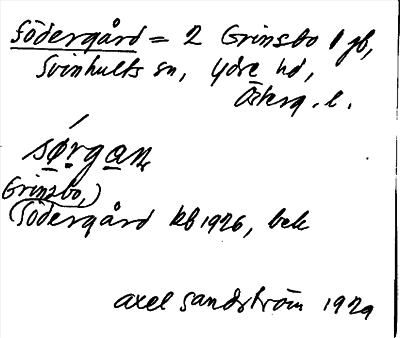 Södergård = 2 Grinsbo 1 gb,
Svinhults sn, Ydre hd,
Österg. l.
sørgan
Grinsbo,)
(Södergård kb 1926, bek
Axel Sandström 1929